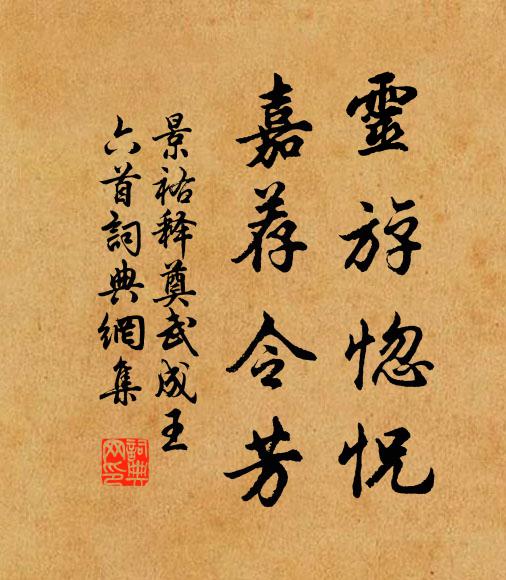 靈斿惚怳
嘉荐令芳
景祐释奠武成王
六首詞典網集
詞典网印